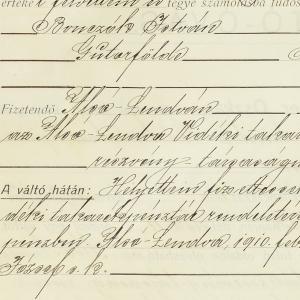 értéket tegye számolásba
Bonczók István
Guterfölde
Fizetendő Alsó-Lendván
az Alsó-Lendva Vidéki taka
részvény társaság
A váltó hátán: Helyettem fizettessen
déki takarékpénztár rendeleti
pénzben Alsó-Lendva, 1910. feb
József s. k.